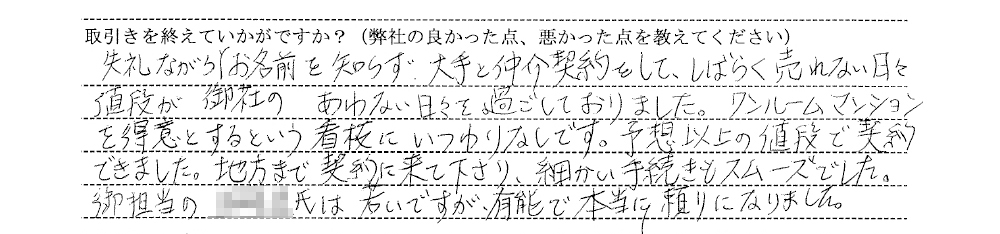 取引きを終えていかがですか？（弊社の良かった点、悪かった点を教えてください）
失礼ながらお名前を知らず、大手と仲介契約をして、しばらく売れない日々
値段が 御社の あわない日々を過ごしておりました。ワンルームマンション
を得意とするという看板にいつわりなしです。予想以上の値段で契約
できました。地方まで契約に来て下さり、細かい手続きもスムーズでした。
御担当の 氏は若いですが、有能で本当に頼りになりました。